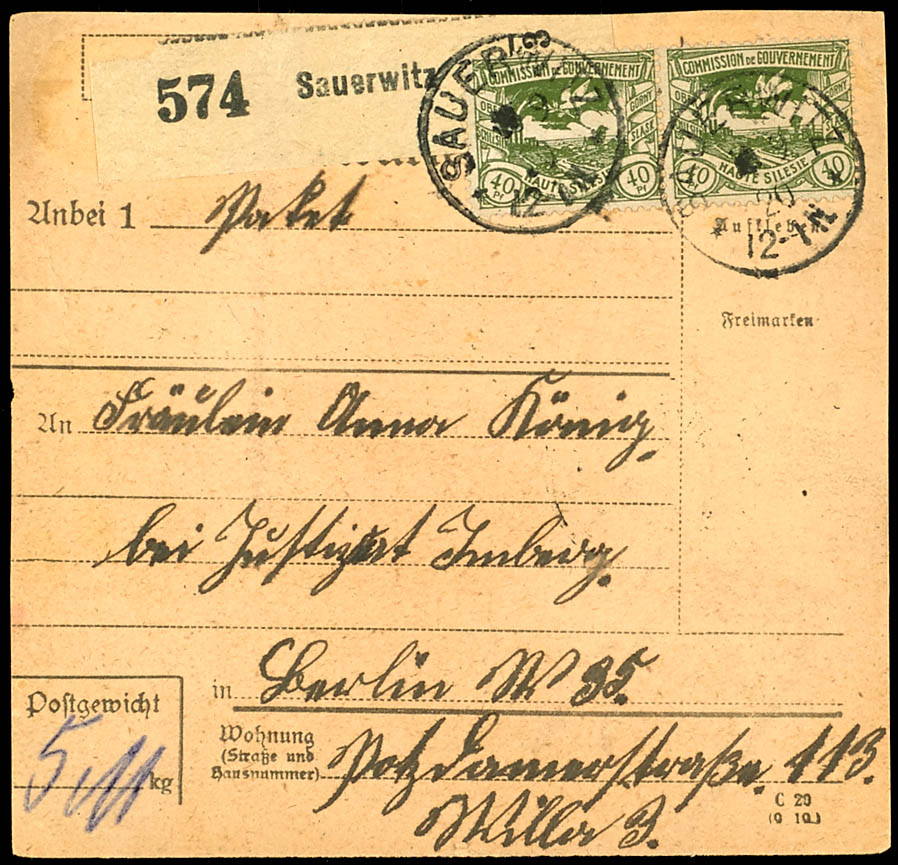 574 Sauerwitz
COMMISSION DE GOUVERNEMENT
GORNY
SLASK
HAUTE SILESIE
40 Pf 40 Pf
COMMISSION DE GOUVERNEMENT
GORNY
SLASK
HAUTE SILESIE
40 40
12-1N
12-1N
Anbei 1 Paket
Aufkleben
Freimarken
An Fräulein Anna König,
bei Justizrat Imberg,
in Berlin W 35.
Postgewicht
kg
Wohnung
(Straße und
Hausnummer) Potzdamerstraße 113.
Villa 3.
C 29